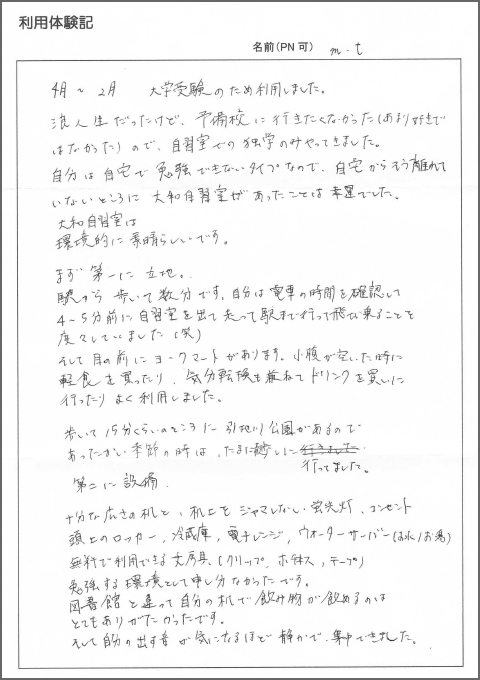 利用体験記
名前(PN可) m.t
4月～2月 大学受験のため利用しました。
浪人生だったけど、予備校に行きたくなかった(あまり好きで
はなかった)ので、自習室での独学のみやってきました。
自分は自宅で勉強できないタイプなので、自宅からそう離れて
いないところに大和自習室があったことは幸運でした。
大和自習室は
環境的に素晴らしいです。
まず第一に立地。
駅から歩いて数分です。自分は電車の時間を確認して
4～5分前に自習室を出て走って駅まで行って飛び乗ることを
度々していました(笑)
そして目の前にヨークマートがあります。小腹が空いた時に
軽食を買ったり、気分転換も兼ねてドリンクを買いに
行ったりよく利用しました。
歩いて15分くらいのところに引地川公園があるので
あったかい季節の時は、たまに憩いに行きました
行ってました。
第二に設備
十分な広さの机と、机上をジャマしない蛍光灯、コンセント
頭上のロッカー、冷蔵庫、電子レンジ、ウォーターサーバー(冷水/お湯)
無料で利用できる文房具(クリップ、ホチキス、テープ)
勉強する環境として申し分なかったです。
図書館と違って自分の机で飲み物が飲めるのは
とてもありがたかったです。
そして自分の出す音が気になるほど静かで、集中できました。